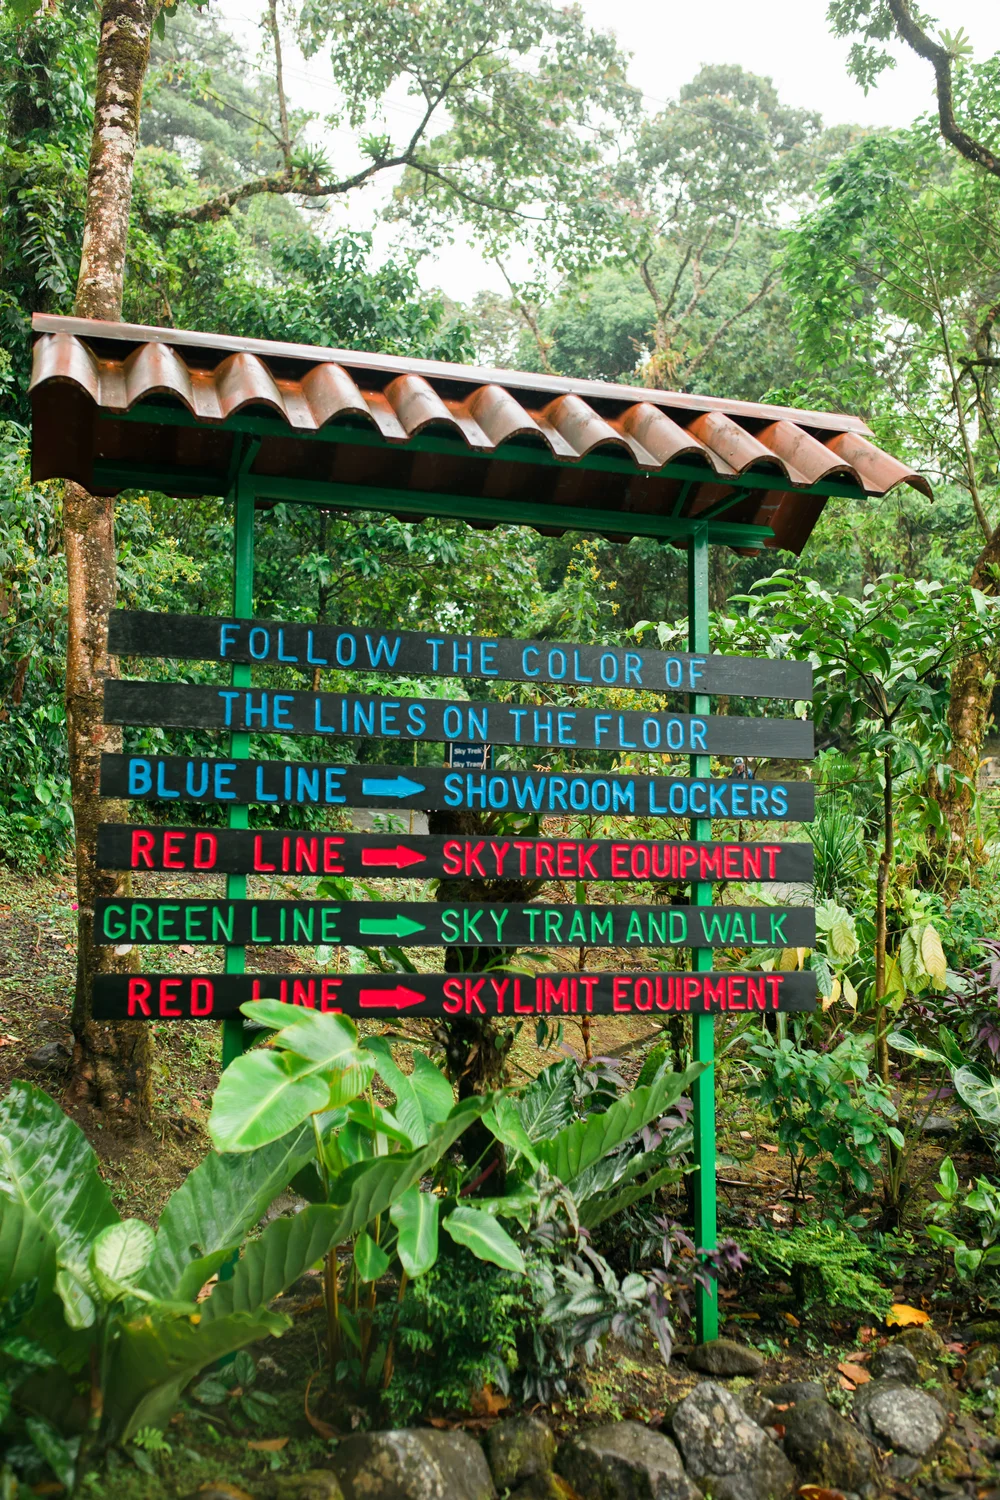 FOLLOW THE COLOR OF
THE LINES ON THE FLOOR
Sky Trek
Sky Tram
BLUE LINE → SHOWROOM LOCKERS
RED LINE → SKYTREK EQUIPMENT
GREEN LINE → SKY TRAM AND WALK
RED LINE → SKYLIMIT EQUIPMENT